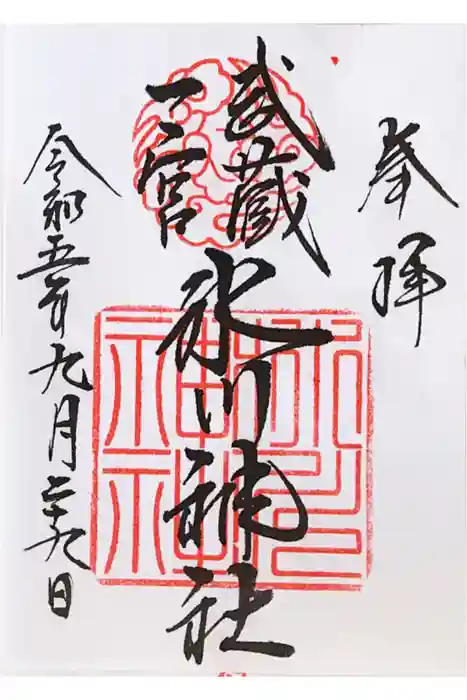 奉拝
武蔵
一宮
氷川神社
令和五年九月二十九日
氷川
神社